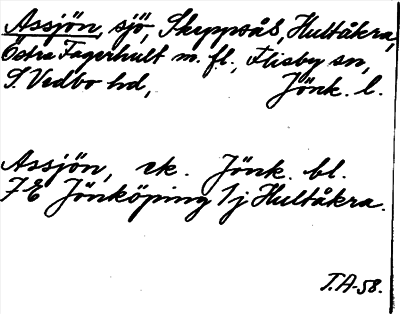 Assjön, sjö, Skeppsås, Hultåkra,
Östra Fagerhult m. fl., Flisby sn,
S. Vedbo hd, Jönk. l.
Assjön, rk. Jönk. bl.
7E Jönköping 1j Hultåkra.
T.A-58.